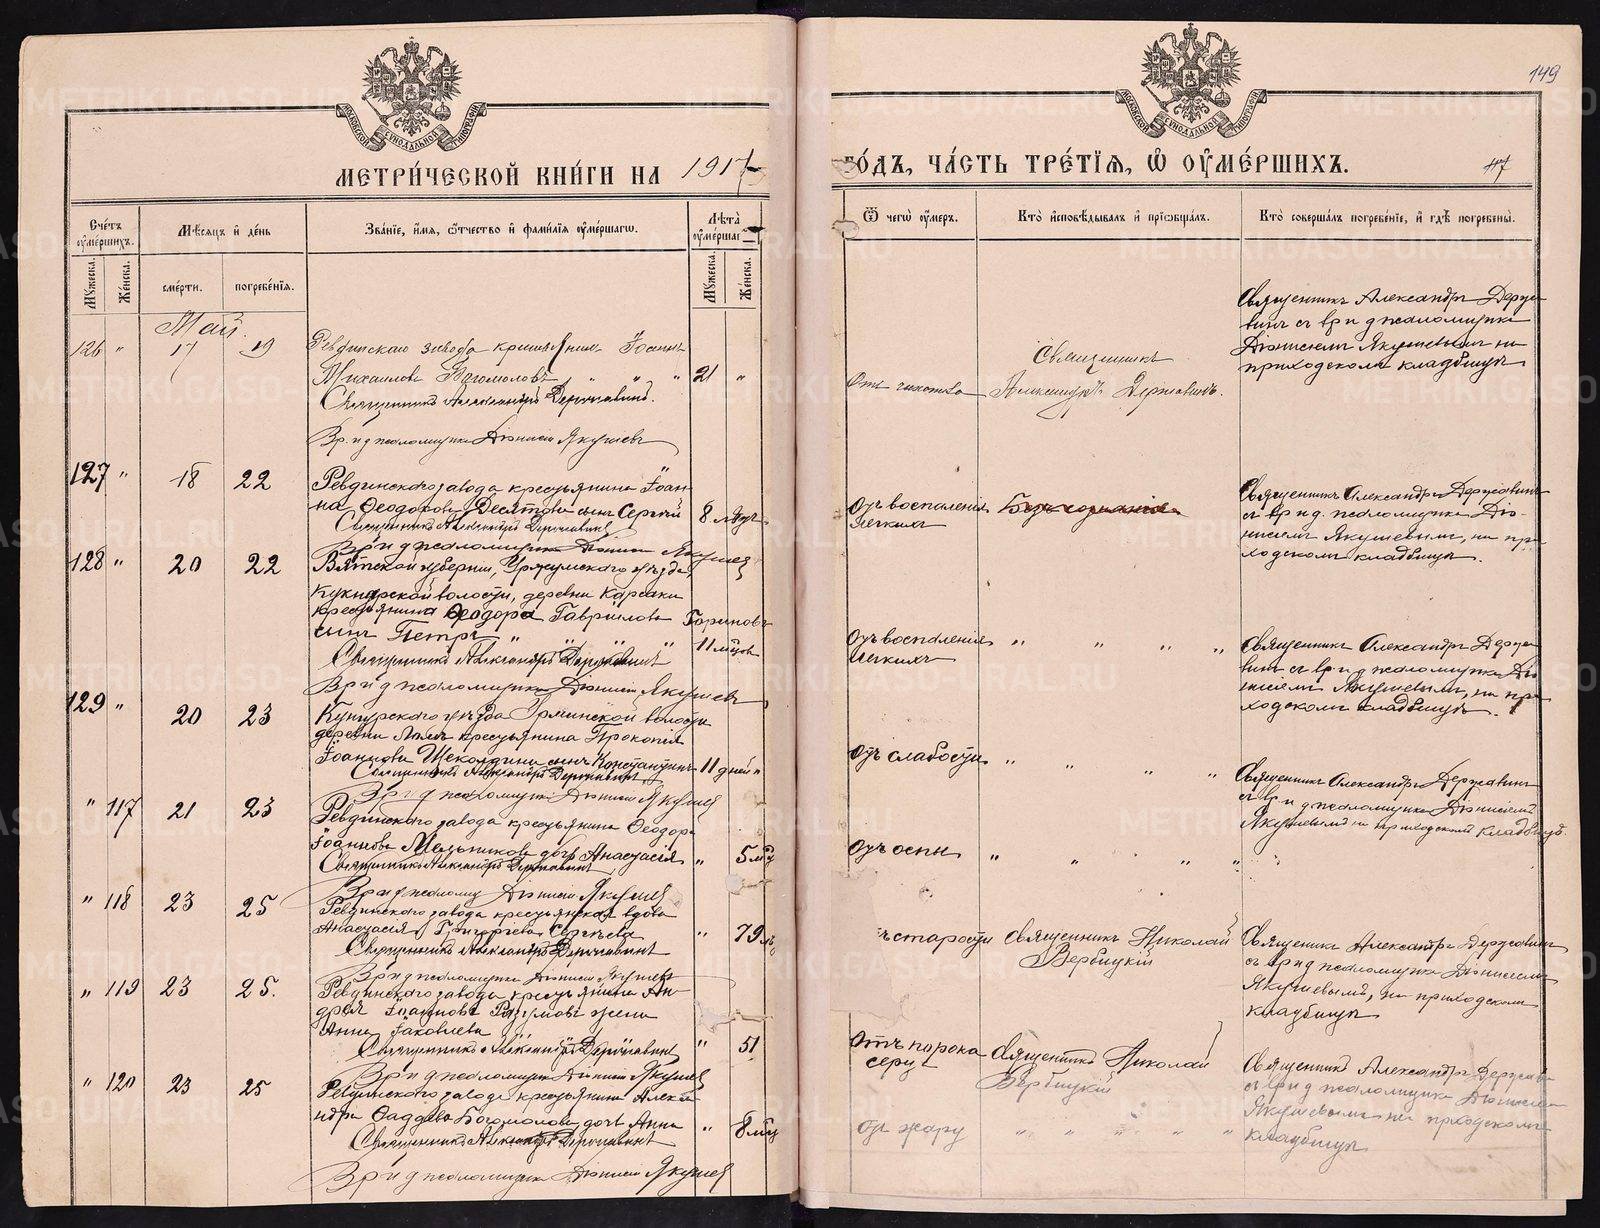 149
МЕТРИ́ЧЕСКОЙ КНИ́ГИ НА 1917
ГО́ДЪ, ЧА́СТЬ ТРЕ́ТІЯ, Ѽ ОУ҆МЕ́РШИХЪ.
117
Сче́тъ оу҆ме́ршихъ.
Мꙋжеска.
Же́нска.
Мѣ́сяцъ и҆ де́нь
сме́рти.
погребе́нїѧ.
Зва́нїе, и҆́мѧ, ѻ҆́тчество и҆ фами́лїѧ оу҆ме́ршагѡ.
Лѣ́та оу҆ме́ршаг
Мꙋжеска.
Же́нска.
Ѿ чегѡ̀ оу҆́меръ.
Кто̀ и҆сповѣ́дывалъ и҆ прїѡбща́лъ.
Кто̀ соверша́лъ погребе́нїе, и҆ гдѣ̀ погребены̀.
Май.
126 " 17 19
Ревдинскаго завода крестьянинъ Іоаннъ
Михаиловъ Богомоловъ " " "
21 "
Священникъ Александръ Державинъ.
Вр. и д псаломщика Діонисій Якушевъ
Отъ чахотки
Священникъ
Александръ Державинъ.
Священникъ Александръ Держа
винъ съ вр и д псаломщика
Діонисіемъ Якушевымъ на
приходскомъ кладбищѣ
127 " 18 22
Ревдинскаго завода крестьянина Іоан
на Ѳеодорова Десятова сынъ Сергѣй
8 лѣтъ
Священникъ Александръ Державинъ
Вр и д псаломщика Діонисій Якушев
Отъ воспаленія
легкихъ
Священникъ Александръ Державинъ
съ вр и д. псаломщика Діо-
нисіемъ Якушевымъ, на при
ходскомъ кладбищѣ.
128 " 20 22
Вятской губерніи, Уржумскаго уѣзда,
Кукнарской волости, деревни
крестьянина Ѳеодора Гаврилова Горинова
сынъ Петръ " " " "
11 мѣсц
Священникъ Александръ Державинъ
Вр и д псаломщика Діонисій Якушевъ
Отъ воспаленія
легкихъ
" " " "
Священникъ Александръ Держа
винъ съ вр и д псаломщика Діо
нисіемъ Якушевымъ, на при
ходскомъ кладбищѣ.
129 " 20 23
Кунгурскаго уѣзда волости
деревни крестьянина Прокопія
Іоаннова Щеколдина сынъ Константинъ
11 дней "
Священникъ Александръ Державинъ
Вр и д псаломщика Діонисій Якушев
Отъ слабости
" " " "
Священникъ Александръ Державинъ
съ вр и д псаломщика Діонисіемъ
Якушевымъ на приходскомъ кладбищѣ.
" 117 21 23
Ревдинскаго завода крестьянина Ѳеодора
Іоаннова Мельникова дочь Анастасія
" 5 мѣс
Священникъ Александръ Державинъ
Вр и д псаломщ Діонисій Якушев
Отъ оспы
" " " "
" 118 23 25
Ревдинскаго завода крестьянская вдова
Анастасія Григорьева Сергѣева
" 79
Священникъ Александръ Державинъ
Вр и д псаломщика Діонисій Якушевъ
ъ старости
Священникъ Николай
Вербицкій
Священникъ Александръ Державинъ
съ вр и д псаломщика Діонисіемъ
Якушевымъ, на приходскомъ
кладбищѣ
" 119 23 25.
Ревдинскаго завода крестьянина Ан-
дрея Іоаннова Разумова жена
Анна Іаковлева
" 51
Священникъ Александръ Державинъ
Вр и д псаломщика Діонисій Якушев
Отъ порока
серд
Священникъ Николай
Вербицкій
Священникъ Александръ Держави
съ вр и д псаломщика Діонисіем
Якушевымъ на приходскомъ
кладбищѣ
" 120 23 25
Ревдинскаго завода крестьянина Алекса
ндра Ѳаддѣева Богомолова дочь Анна
" 8 мѣс
Священникъ Александръ Державинъ
Вр и д псаломщика Діонисій Якушев
Отъ жару
" " " " "